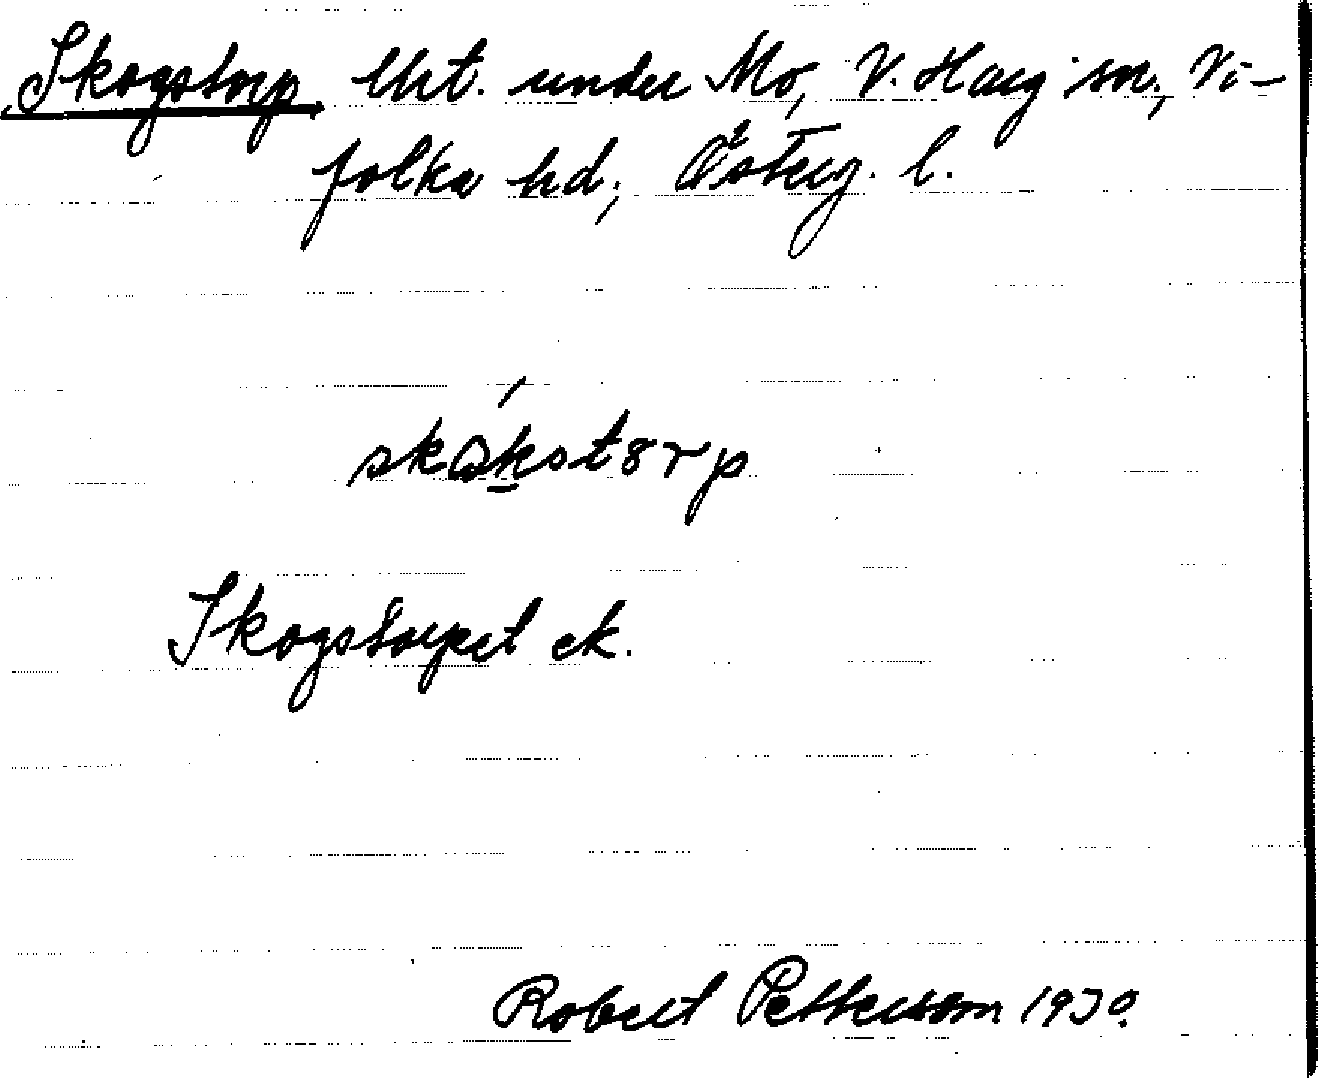 Skogstorp, lht. under Mo, V. Harg sn, Vi-
folka hd, Österg. l.
skåkstörp
Skogstorpet ek.
Robert Pettersson 1930.